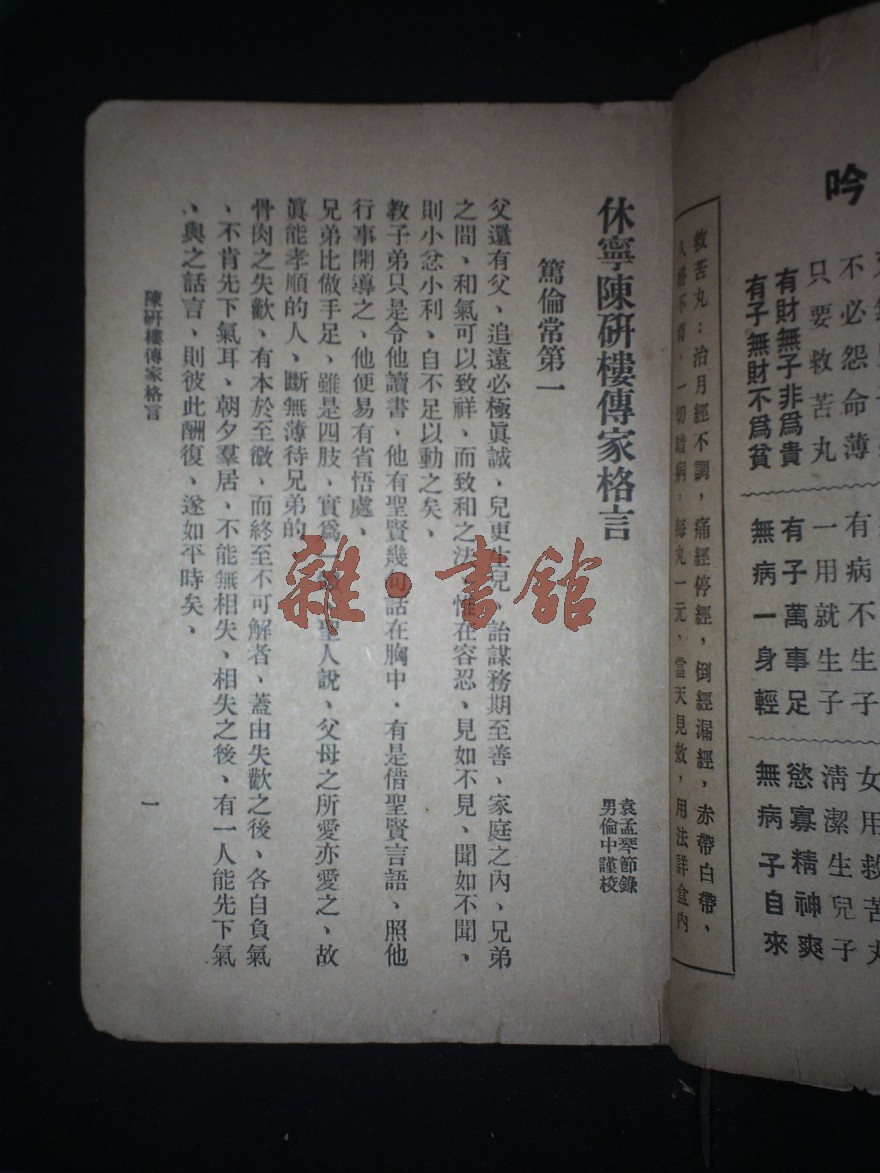 吟
只要救苦丸
不必怨命薄
有財無子非爲貴
有子無財不爲貧
有病不生子
一用就生子
有子萬事足
無病一身輕
女用救苦丸
淸潔生兒子
慾寡精神爽
無病子自來
救苦丸：治月經不調，痛經停經，倒經漏經，赤帶白帶、
一切暗病，每丸一元，當天見效，用法詳盒內
休寧陳硏樓傳家格言
袁孟琴節錄
男倫中謹校
篤倫常第一
父還有父、追遠必極眞誠、兒更生兒、詒謀務期至善、家庭之內、兄弟
之間、和氣可以致祥、而致和之法、惟在容忍、見如不見、聞如不聞、
則小忿小利、自不足以動之矣、
教子弟只是令他讀書、他有聖賢幾句話在胸中、有是借聖賢言語、照他
行事開導之、他便易有省悟處、
兄弟比做手足、雖是四肢、實爲一 聖人說、父母之所愛亦愛之、故
眞能孝順的人、斷無薄待兄弟的
骨肉之失歡、有本於至微、而終至不可解者、蓋由失歡之後、各自負氣
、不肯先下氣耳、朝夕羣居、不能無相失、相失之後、有一人能先下氣
、與之話言、則彼此酬復、遂如平時矣、
陳硏樓傳家格言
一
雜·書館